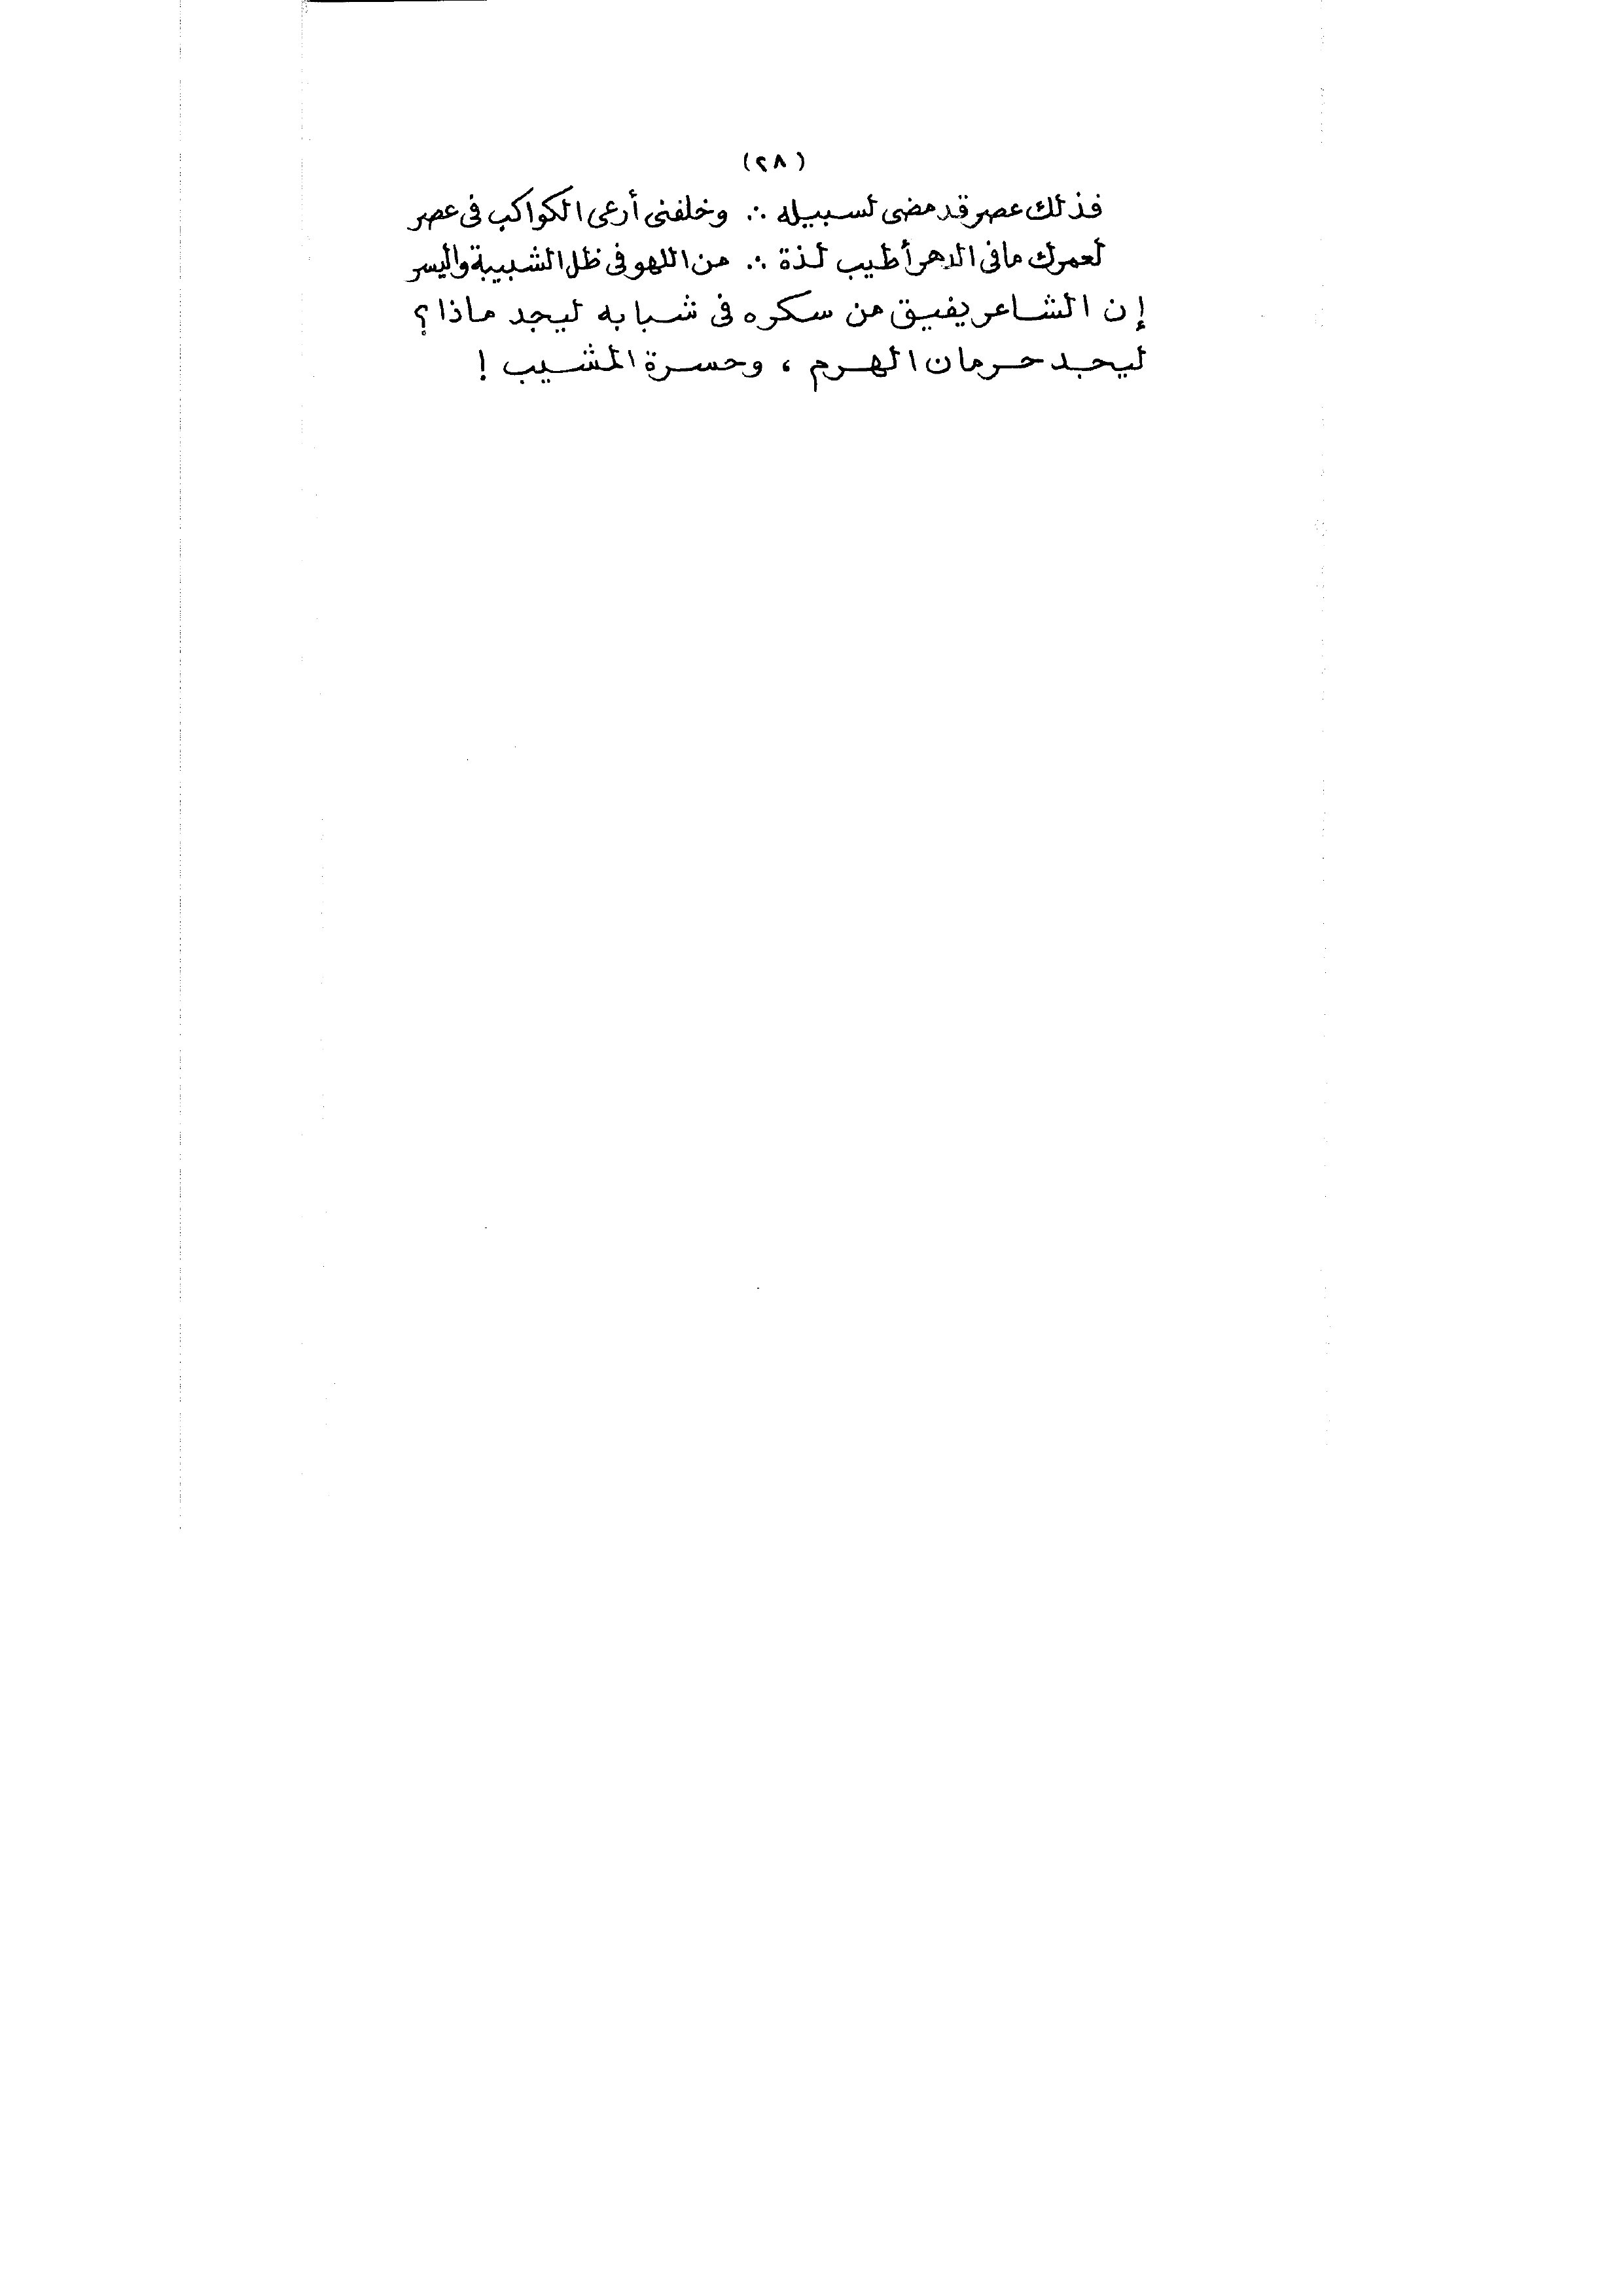 (٢٨)
فذلك عصر قد مضى لسبيله ∴ وخلفنى أرعى الكواكب فى عصر
لعمرك ما فى الدهر أطيب لذة ∴ من اللهو فى ظل الشبيبة واليسر
إن الشاعر يفيق من سكره فى شبابه ليجد ماذا ؟
ليجد حرمان الهرم ، وحسرة المشيب !